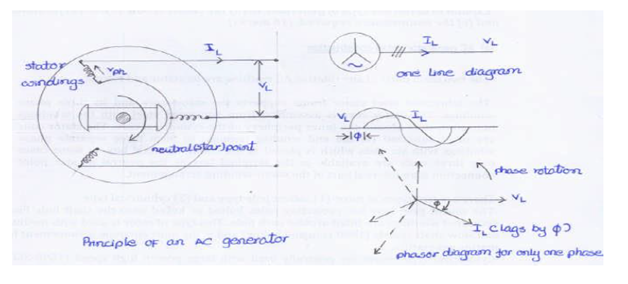 stator
windings
Vph
IL
VL
neutral (star) point
Principle of an AC generator
IL
VL
one line diagram
VL
IL
φ
phase rotation
VL
φ
IL (lags by φ)
phasor diagram for only one phase